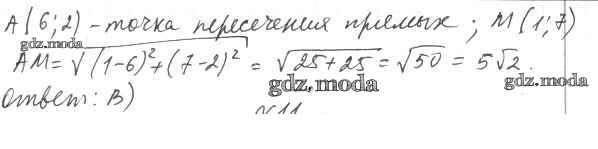 A(6; 2) - точка пересечения прямых; M(1; 7)
gdz.moda
AM = √(1-6)²+(7-2)² = √25+25 = √50 = 5√2.
gdz.moda
gdz.moda
ответ: B)